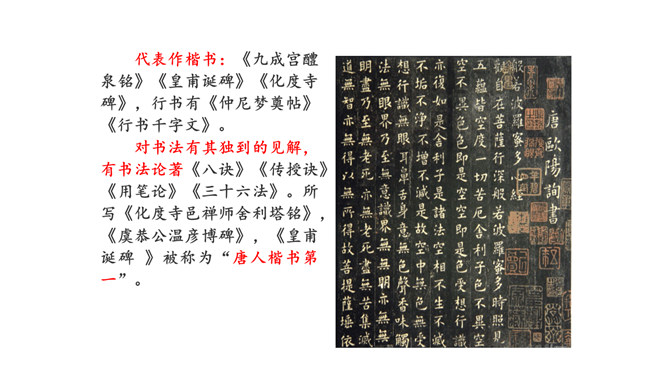 代表作楷书：《九成宫醴
泉铭》《皇甫诞碑》《化度寺
碑》，行书有《仲尼梦奠帖》
《行书千字文》。
对书法有其独到的见解，
有书法论著《八诀》《传授诀》
《用笔论》《三十六法》。所
写《化度寺邑禅师舍利塔铭》，
《虞恭公温彦博碑》，《皇甫
诞碑 》被称为“唐人楷书第
一”。
唐歐陽詢書
般若波羅蜜多心經
觀自在菩薩行深般若波羅蜜多時照見
五蘊皆空度一切苦厄舍利子色不異空
空不異色色即是空空即是色受想行識
亦復如是舍利子是諸法空相不生不滅
不垢不淨不增不減是故空中無色無受
想行識無眼耳鼻舌身意無色聲香味觸
法無眼界乃至無意識界無無明亦無無
明盡乃至無老死亦無老死盡無苦集滅
道無智亦無得以無所得故菩提薩埵依